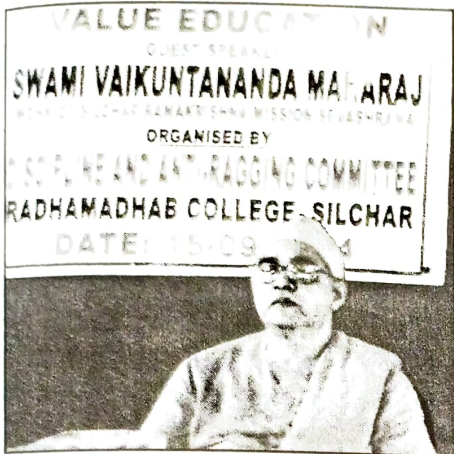 VALUE EDUCATION
GUEST SPEAKER
SWAMI VAIKUNTANANDA MAHARAJ
MONK OF SILCHAR RAMAKRISHNA MISSION SEVASHRAMA
ORGANISED BY
DISCIPLINE AND ANTI-RAGGING COMMITTEE
RADHAMADHAB COLLEGE-SILCHAR
DATE: 15-09